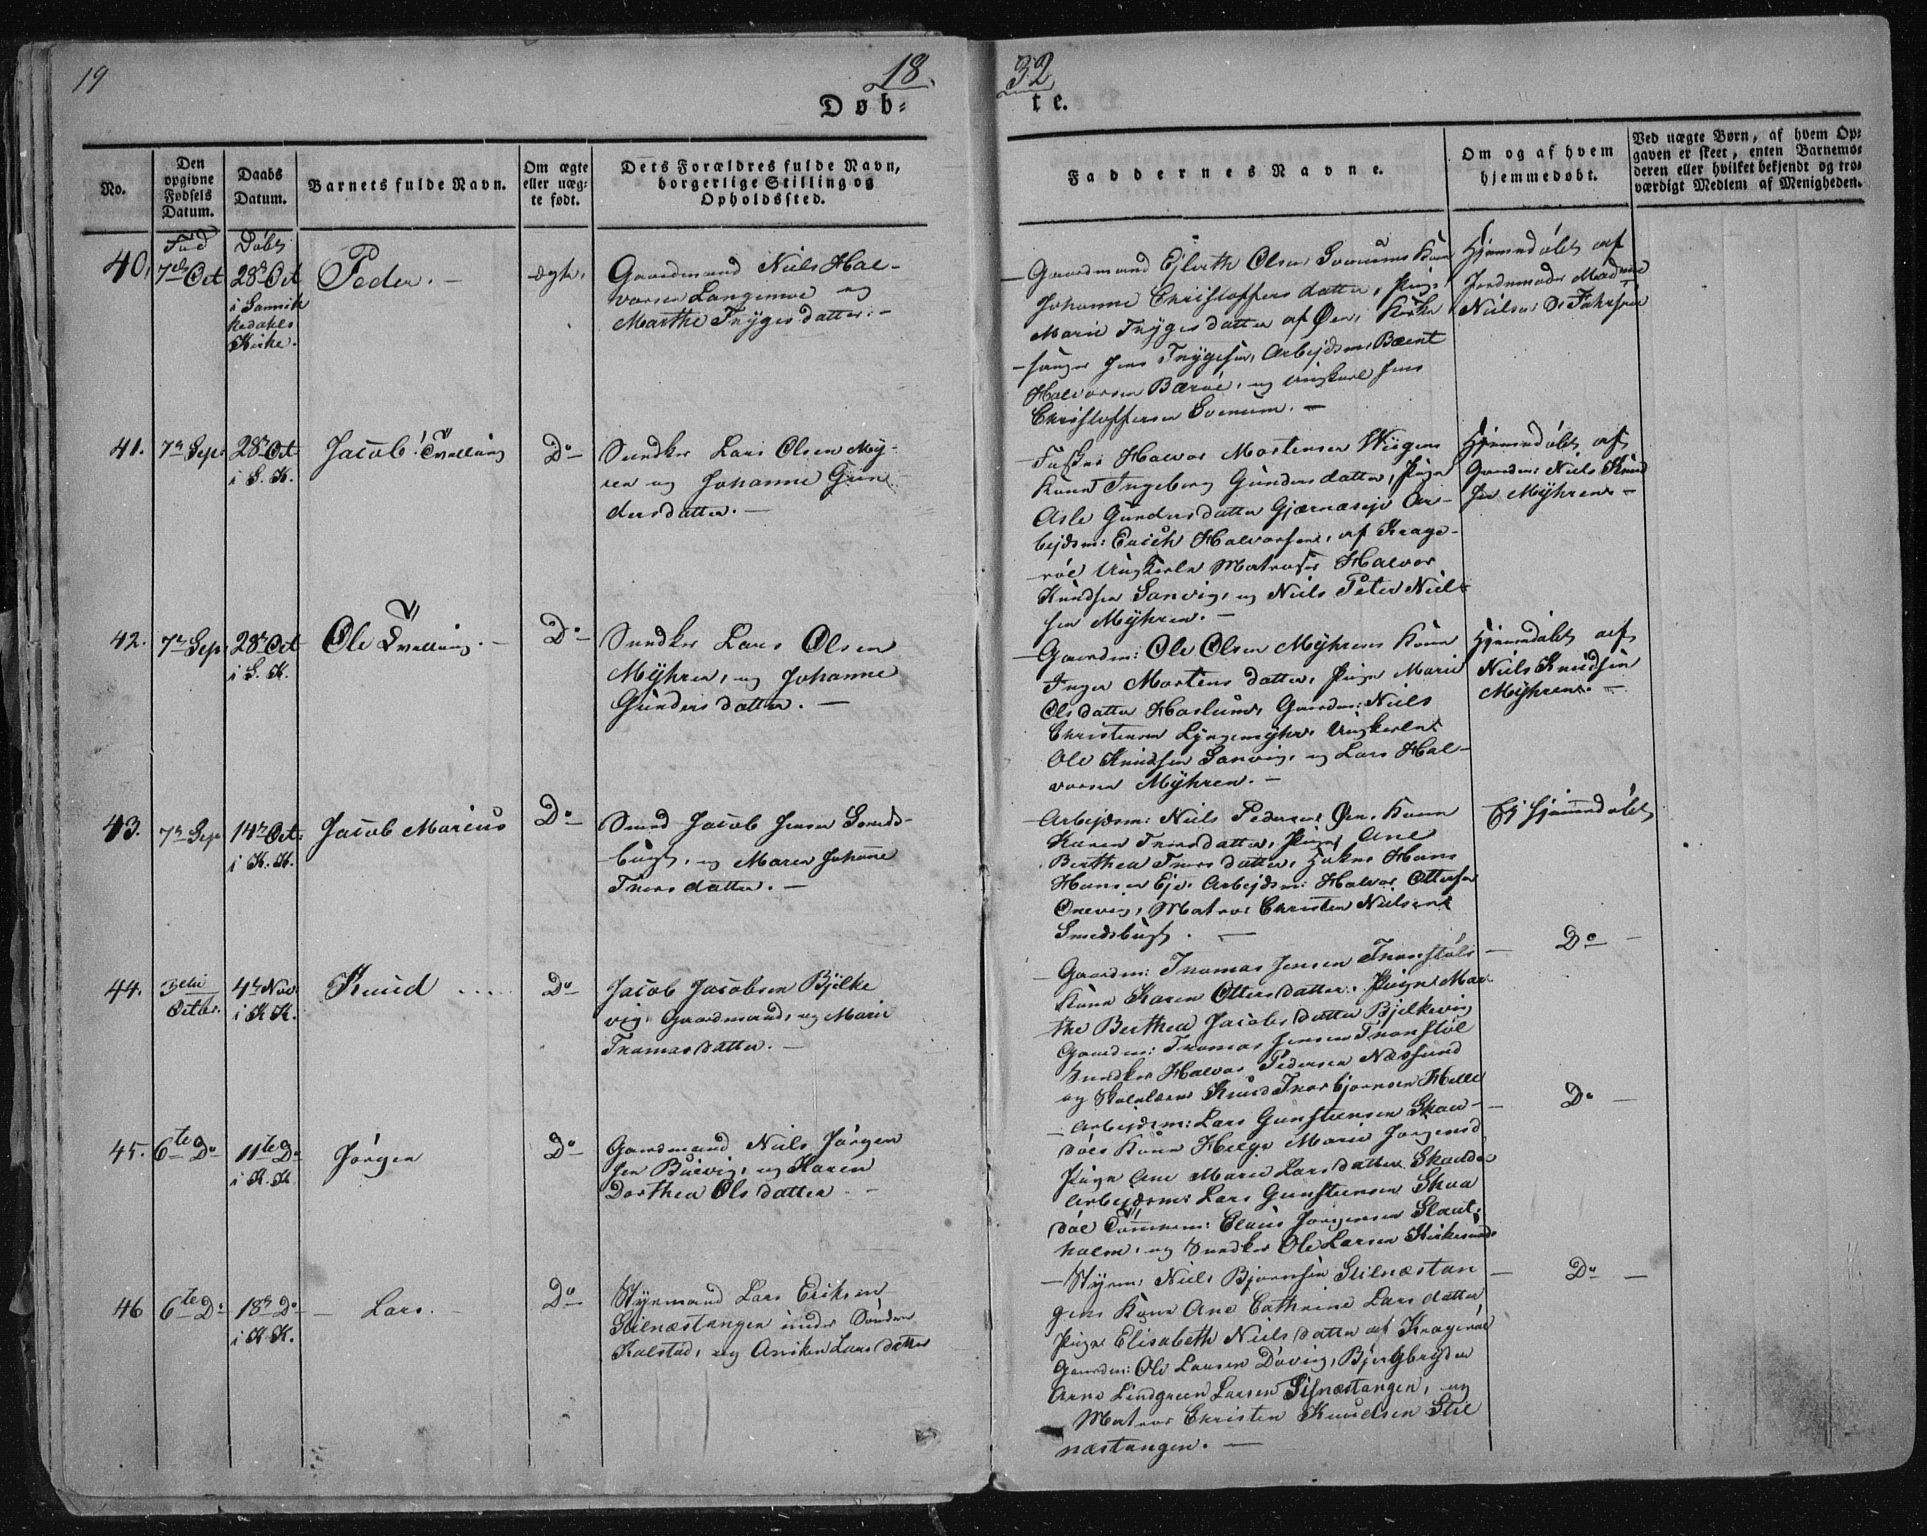 19
18
32
Døb=
te.
No.
Den
opgivne
Fødsels
Datum.
Daabs
Datum.
Barnets fulde Navn.
Om ægte
eller uæg-
te født.
Dets Forældres fulde Navn,
borgerlige Stilling og
Opholdssted.
Faddernes Navne.
Om og af hvem
hjemmedøbt.
Ved uægte Børn, af hvem Op-
gaven er skeet, enten Barnemo-
deren eller hvilket bekjendt og tro-
værdigt Medlem af Menigheden.
Fød
Døbt
40.
7de Oct
28de Oct
i Sannik
kedahls
Kirke.
Peder. —
ægte.
Gaardmand Niels Hal-
vorsen Langemoe og
Marthe Trygesdatter. —
— Gaardmand Ejlerth Olsen Kone
Johanne Christoffersdatter, Pige
Marie Trygesdatter af Øen, Kirke
-sanger Jens Trygesen, Arbejdsm. Bærnt
Halvorsen Barøe, og Ungkarl Jens
Christoffersen —
Hjemmdøbt af
Jordemoder Madme
Nielsen
41.
7de Sep.
28de Oct
i S. K.
Jacob. Tvilling
Do —
Sundker Lars Olsen My-
ren og Johanne Gun
dersdatter. —
Halvor Mortensen Wiigens
Kone Ingeborg Gundersdatter, Pige
Asle Gundersdatter Ar-
bejdsm: Erich Halvorsen, af Krage-
røe Ungkarle Matroser Halvor
Knudsen Sanvig, og Niels Peter Niel-
sen Mÿhren. —
Hjemmdøbt af
Gaardm: Niels Knud
sen Mÿhren. —
42.
7de Sep.
28de Oct
i S. K.
Ole Tvilling. —
Do —
Sundker Lars Olsen
Mÿhren, og Johanne
Gundersdatter. —
— Gaardm: Ole Olsen Mÿhrens Kone
Inger Mortensdatter, Pige Marie
Olsdatter Haslund, Gaardm: Niels
Christensen Lyngemyhr, Ungkarle
Ole Knudsen Sanvig, og Lars Hal-
vorsen Mÿhren. —
Hjemmdøbt af
Niels Knudsen
Mÿhren. —
43.
7de Sep
14de Oct.
i K. K.
Jacob Marius
Do —
Smed Jacob Jensen Smeds-
bugt, og Maren Johanne
Thorsdatter. —
— Arbejdsm: Niels Pedersen Øen, Kone
Karen Thorsdatter, Pige Ane
Berthea Thorsdatter, Hans
Hansen Eje, Arbejdsm: Halvor Ottersen
Matros Christen Nielsen
Smedsbugt. —
Ej hjemmdøbt
44.
3die
Octbr.
4de Nov.
i K. K.
Knud ...
Do
Jacob Jacobsen Bjelke
vig, Gaardmand, og Marie
Thomasdatter. —
— Gaardm: Thomas Jensen Transtøls
Kone Karen Ottersdatter, Pige Mar-
the Berthea Jacobsdatter Bjelkevig
Gaardm: Thomas Jensen Transtøl
Sundker Halvor Pedersen Næssund
og Knud Thorbjørnsen Helle
— Do —
45.
6te Do
11te Do
i K. K.
Jørgen
Do
Gaardmand Niels Jørgen
sen Buevig, og Karen
Dorthea Olsdatter. —
— Arbejdsm: Lars Gunsteensen Skaa-
døes Kone Helge Marie Jørgensd
Pige Ane Marie Larsdatter Skaadøe
Arbejdsm: Lars Gunsteensen Skaa
døe Tømmerm: Claus Jørgensen Slaat-
holm, og Sundker Ole Larsen Kirkesund
— Do —
46
6te Do
18de Do
i K. K.
— Lars. —
Do
Styrmand Lars Eriksen
Stilnæstangen under Søndre
Kalstad, og Aniken Larsdatter
— Styrm: Niels Bjørnsen Stilnæstan
gens Kone Ane Cathrine Larsdatter
Pige Elisabeth Nielsdatter af Kragerøe
Gaardm: Ole Larsen Døvig, Bjergbryder
Arne Lindgreen Larsen Stilnæstangen, og
Matros Christen Knudsen Stil
næstangen. —
— Do —